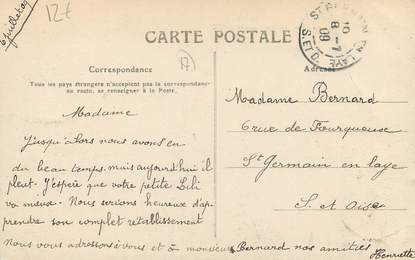 6 juillet 09
12t
CARTE POSTALE
ST GERMAIN EN LAYE
10
8 -7
09
S. ET O.
Correspondance
Tous les pays étrangers n'acceptent pas la correspondance
au recto, se renseigner à la Poste.
Adresse
Madame
Jusqu'alors nous avons eu
du beau temps, mais aujourd'hui il
pleut. J'espère que votre petite Lili
va mieux. Nous serions heureux d'ap-
prendre son complet rétablissement
Nous vous adressons à vous et à monsieur Bernard nos amitiés
Henriette
Madame Bernard
6 rue de Fourqueuse
St Germain en laye
S. et Oise